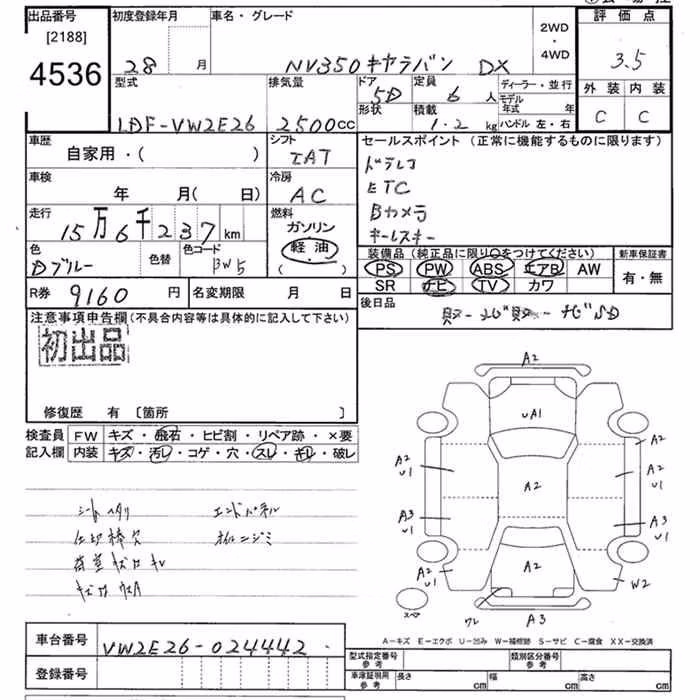 出品番号
[2188]
4536
初度登録年月
28 月
車名・グレード
NV350 キャラバン DX
2WD
・
4WD
評価点
3.5
外装 内装
C C
型式
LDF-VW2E26
排気量
2500cc
ドア
5D
形状
定員
6 人
積載
1.2 kg
ディーラー・並行
モデル年式 年
ハンドル 左・右
車歴
自家用・( )
シフト
IAT
車検
年 月( 日)
冷房
AC
走行
15万6千237km
燃料
ガソリン
軽油
( )
色
Dブルー
色替
色コード
BW5
R券 9160 円
名変期限 月 日
セールスポイント (正常に機能するものに限ります)
ドラレコ
ETC
Bカメラ
キーレスキー
装備品 (純正品に限り○をつけてください)
PS PW ABS エアB AW
SR ナビ TV カワ
新車保証書
有・無
後日品
注意事項申告欄(不具合内容等は具体的に記入して下さい)
初出品
修復歴 有 [箇所 ]
検査員
記入欄
FW キズ・飛石・ヒビ割・リペア跡・×要
内装 キズ・汚レ・コゲ・穴・スレ・キレ・破レ
シートヘタリ エンドパネル
仕切棒欠 オイルニジミ
A2
UA1
A2
A2
A2
U1
A3
U1
A2
U1
A2
A2
U1
A3
U1
W2
ワレ
A3
スペア
A−キズ E−エクボ U−凹み W−補修跡 S−サビ C−腐食 XX−交換済
車台番号
VW2E26-024442
登録番号
型式指定番号
参考
類別区分番号
参考
車庫証明用
参考
長さ cm
幅 cm
高さ cm